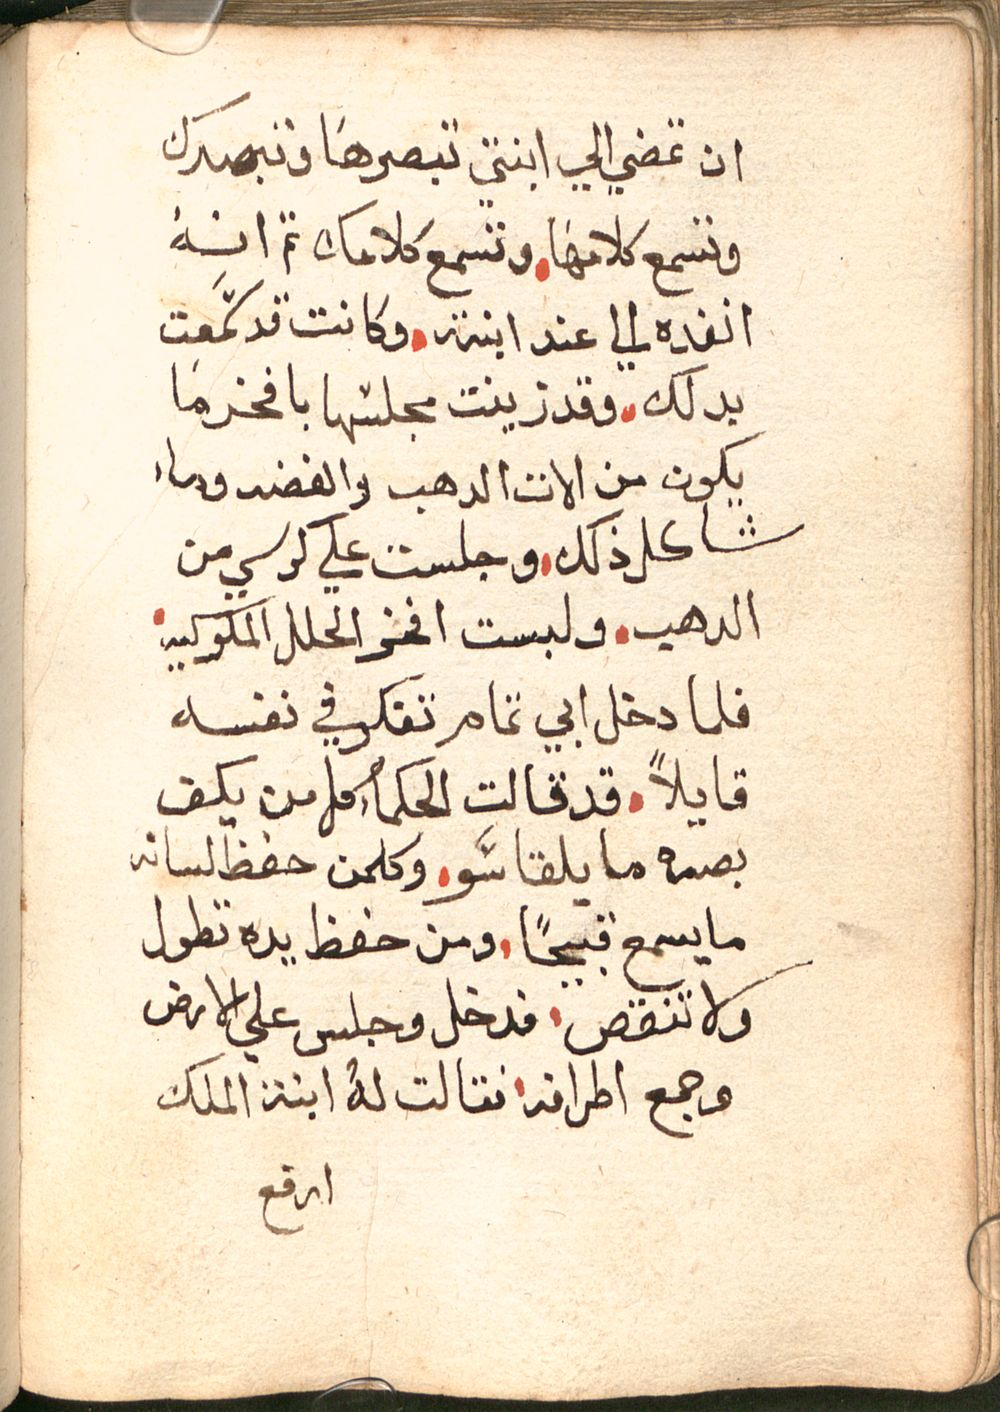 ان تمضي الي ابنتي تبصرها وتبصرك
وتسمع كلامها. وتسمع كلامك ثم انهُ
انفده الي عند ابنته. وكانت قد سمعت
بدلك. وقد زينت مجلسها بافخر ما
يكون من الات الدهب والفضه وما
شاكل ذلك. وجلست علي كرسي من
الدهب. ولبست افخر الحلل الملوكيه.
فلما دخل ابي تمام تفكر في نفسه
قايلاً. قد قالت الحكماء كل من يكف
بصره ما يلقا سَّو. وكلمن حفظ لسانه
ما يسمع قبيحًا. ومن حفظ يده تطول
ولا تنقص. فدخل وجلس علي الارض
وجمع اطرافه. فقالت لهُ ابنة الملك
ارفع